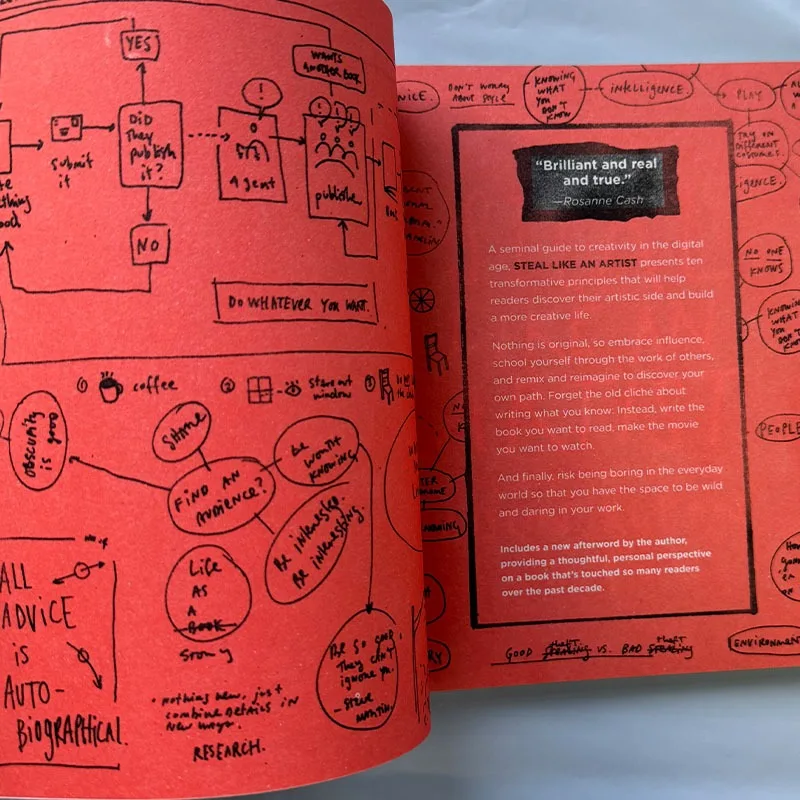 YES
WANTS
ANOTHER BOOK
!
DID
THEY
PUBLISH
IT?
SUBMIT
IT
AGENT
PUBLISHER
NO
DO WHATEVER YOU WANT.
① coffee
② STARE OUT
WINDOW
③
OBSCURITY
IS GOOD
SHARE
FIND AN
AUDIENCE?
BE
WORTH
KNOWING
BE INTERESTED.
BE INTERESTING.
LIFE
AS
A
BOOK
STORY
ALL
ADVICE
IS
AUTO-
BIOGRAPHICAL.
BE SO GOOD
THEY CAN'T
IGNORE YOU.
- STEVE
MARTIN
• NOTHING NEW, JUST
COMBINE DETAILS IN
NEW WAYS.
RESEARCH.
DON'T WORRY
ABOUT STYLE
KNOWING
WHAT
YOU
DON'T
KNOW
INTELLIGENCE.
PLAY
TRY ON
DIFFERENT
COSTUMES.
“Brilliant and real
and true.”
—Rosanne Cash
A seminal guide to creativity in the digital
age, STEAL LIKE AN ARTIST presents ten
transformative principles that will help
readers discover their artistic side and build
a more creative life.
Nothing is original, so embrace influence,
school yourself through the work of others,
and remix and reimagine to discover your
own path. Forget the old cliché about
writing what you know: Instead, write the
book you want to read, make the movie
you want to watch.
And finally, risk being boring in the everyday
world so that you have the space to be wild
and daring in your work.
Includes a new afterword by the author,
providing a thoughtful, personal perspective
on a book that's touched so many readers
over the past decade.
NO ONE
KNOWS
KNOWING
WHAT
YOU
DON'T
PEOPLE
ENVIRONMENT
GOOD STEALING THEFT VS. BAD STEALING THEFT